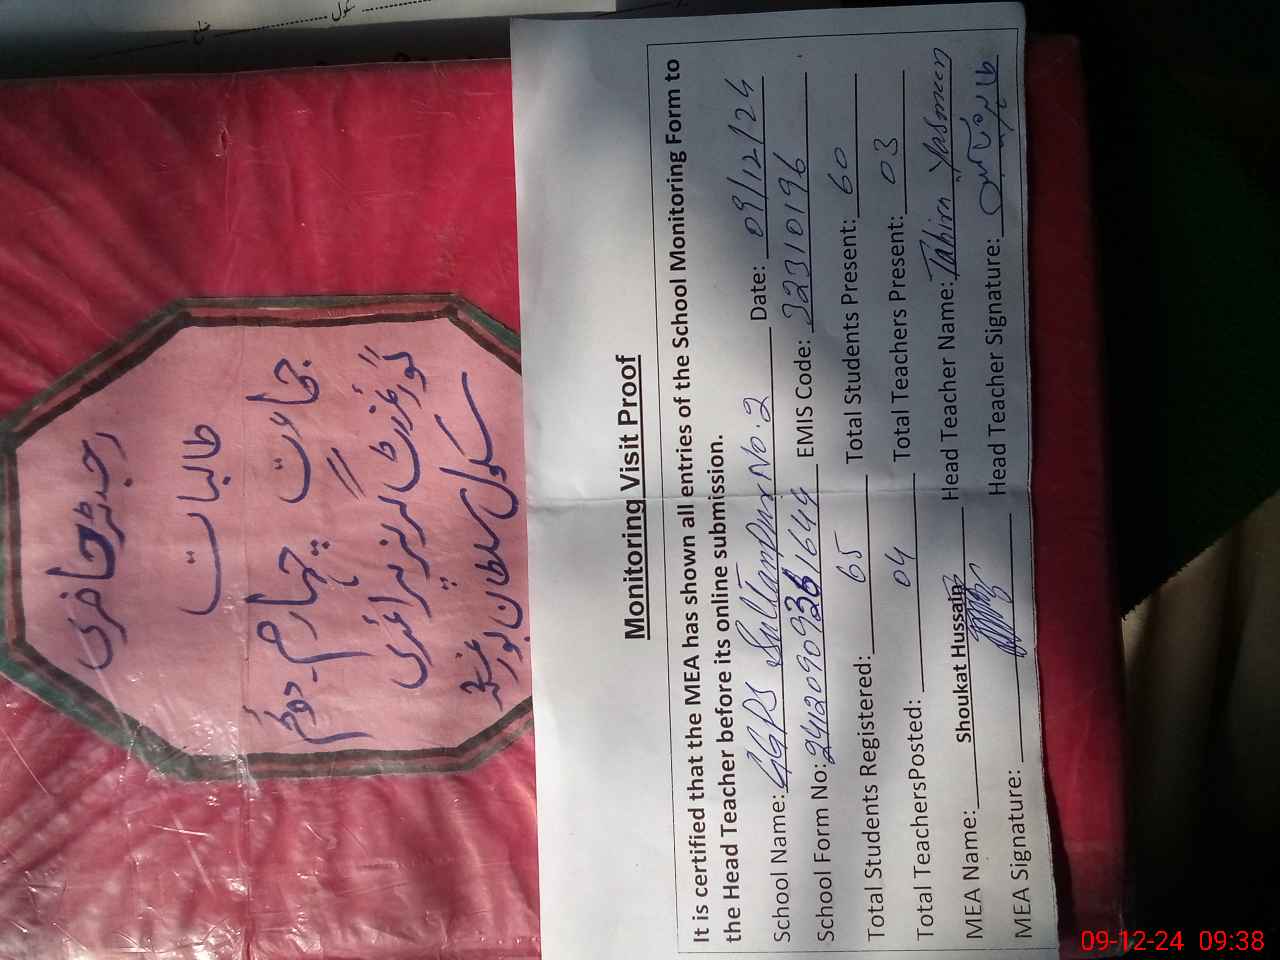 ضلع سکول
رجسٹر حاضری
طالبات
جماعت چہارم - دوئم
گورنمنٹ گرلز پرائمری
سکول سلطان پور
Monitoring Visit Proof
It is certified that the MEA has shown all entries of the School Monitoring Form to
the Head Teacher before its online submission.
School Name: GGPS Sultanpur No. 2 Date: 09/12/24
School Form No: EMIS Code: 32310196
Total Students Registered: 65 Total Students Present: 60
Total TeachersPosted: 04 Total Teachers Present: 03
MEA Name: Shoukat Hussain Head Teacher Name: Tahira Yasmeen
MEA Signature: Head Teacher Signature:
09-12-24 09:38